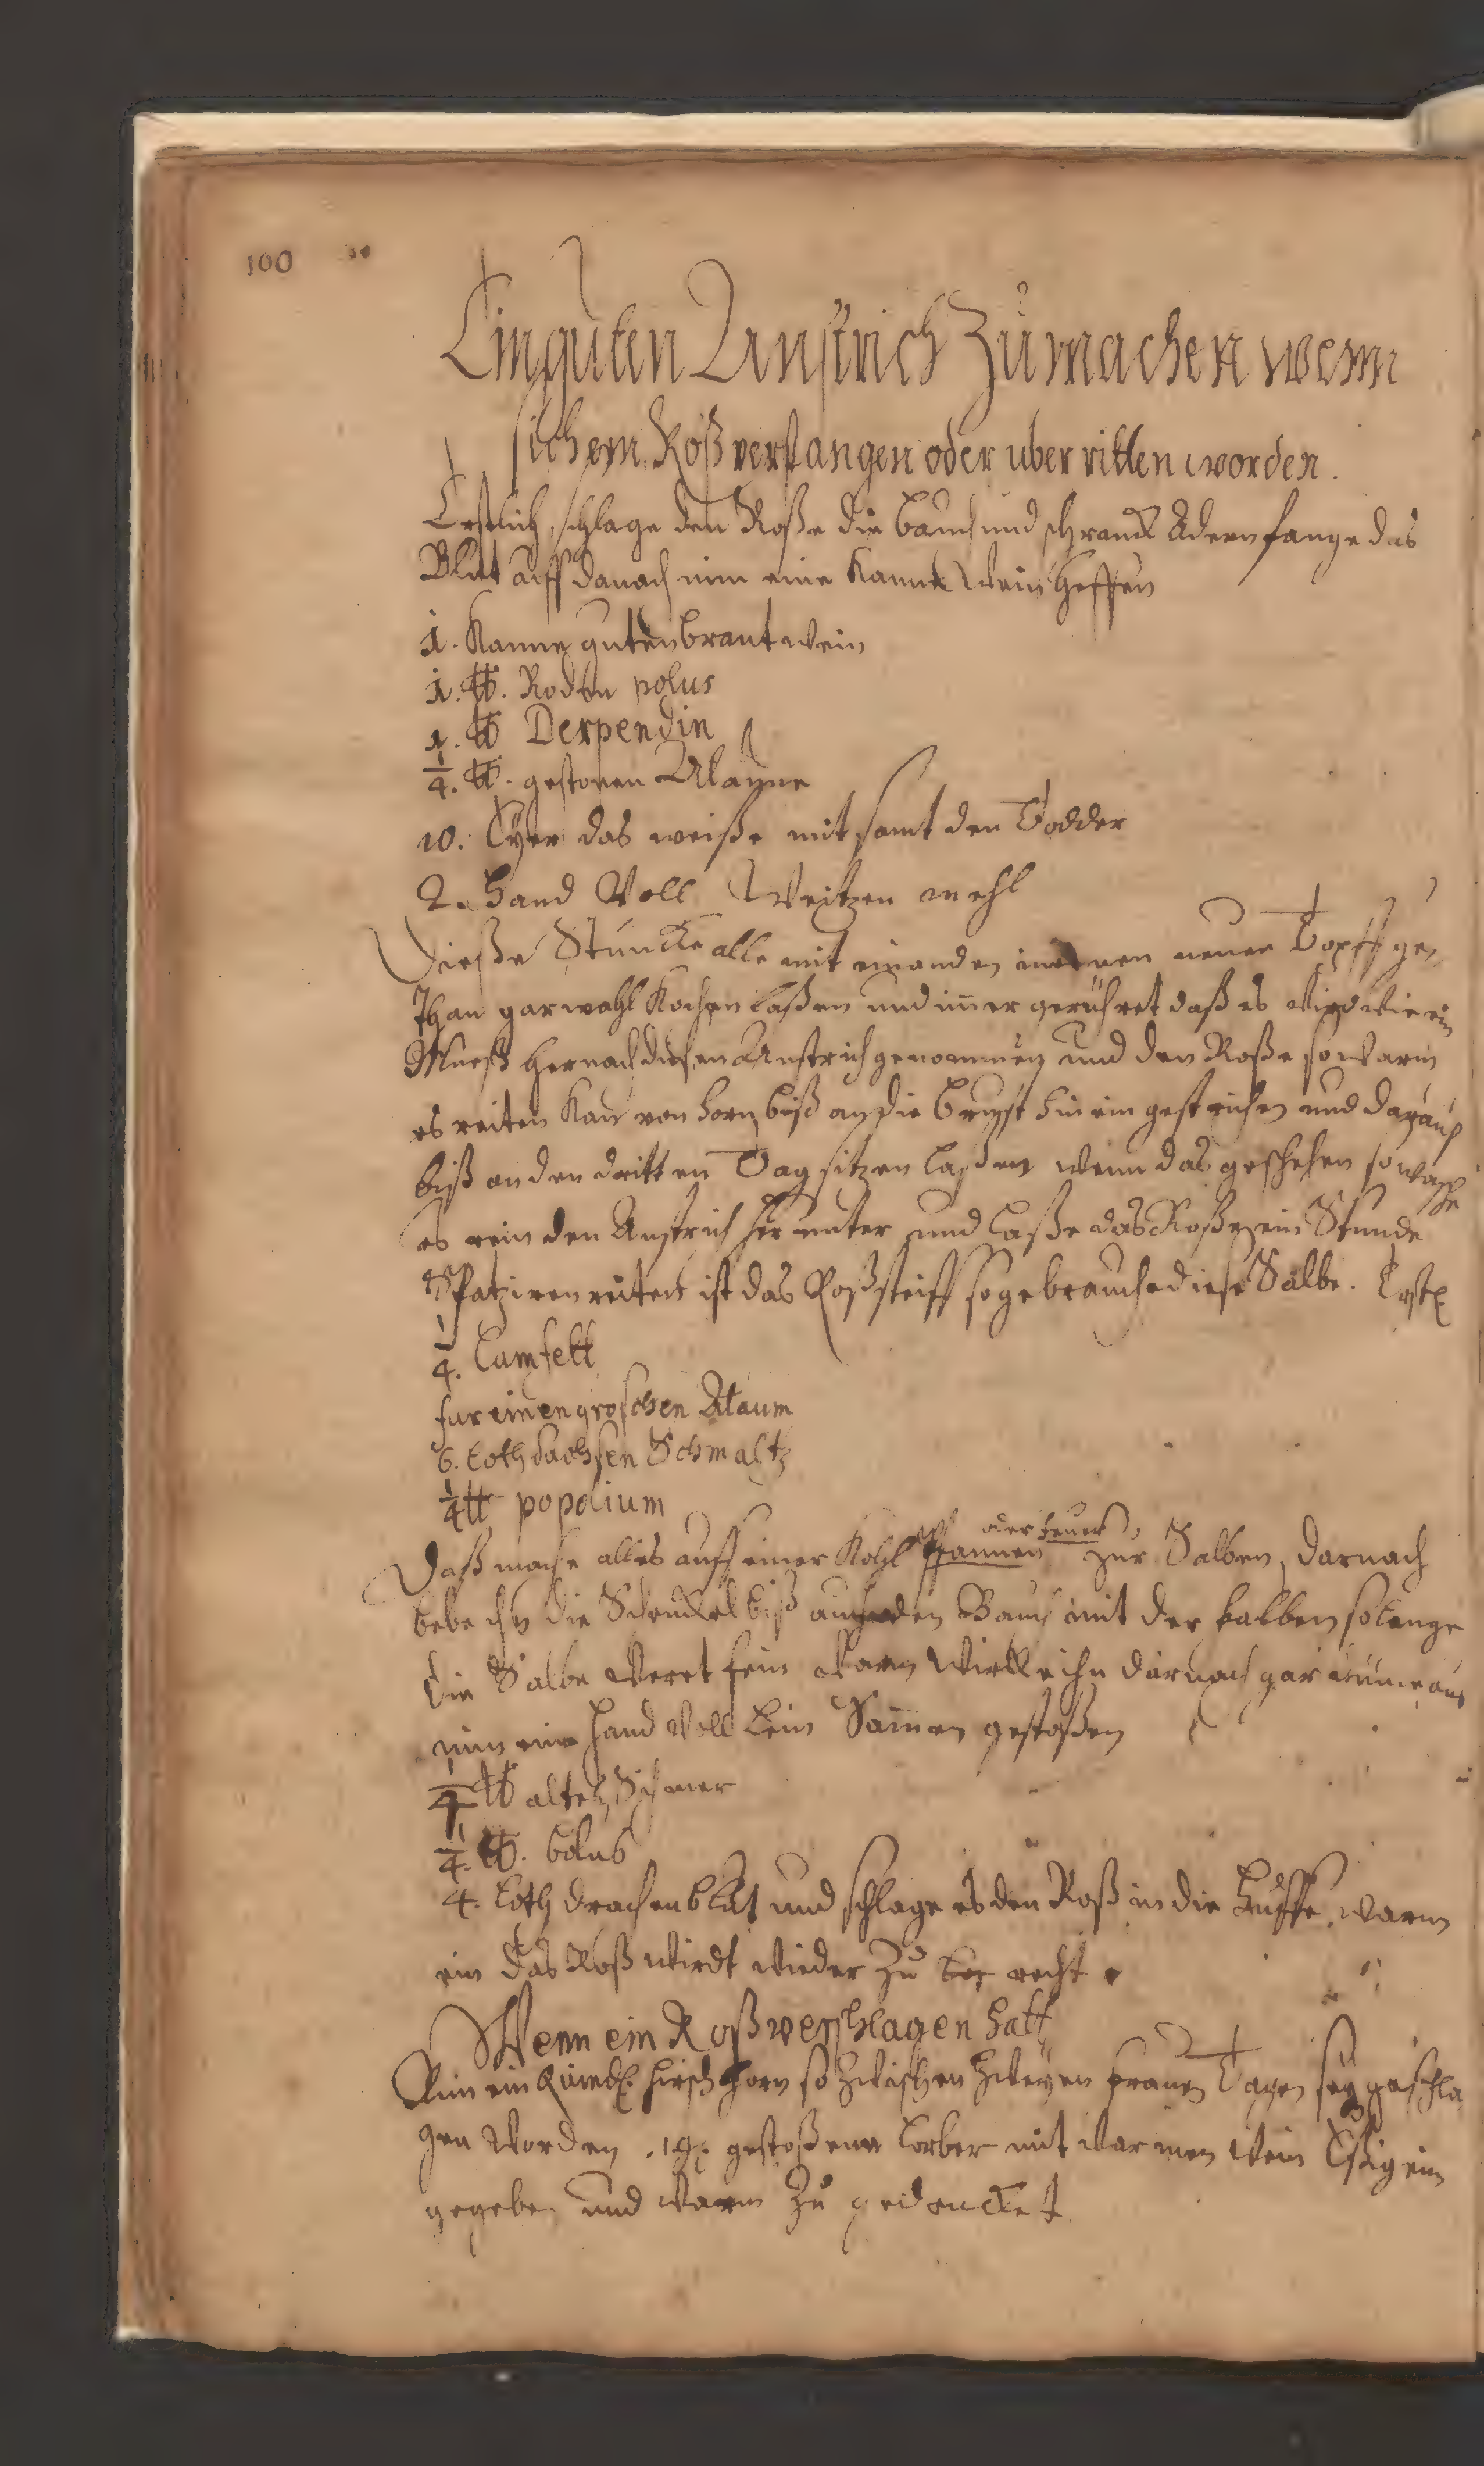 100
Ein guten Anstrich Zu machen wenn
sich ein Roß verfangen oder uber ritten worden.
Erstlich schlage den Roße die bauch und schranck Adern fange das
Blut auff danach nim eine Kanne Wein Heffen
1. Kanne guten brantwein
1. ℔. Rodten polus
1. ℔ Derpendin
1/4. ℔. gestoßen Alaune
10. Eyer das weiße mit samt den Dodder
2. Hand Voll Weitzen mehl
Dieße Stuncke alle mit einander in einen neuen Topff ge,
than gar wohl Kochen laßen und imer gerühret daß es wird wie ein
Mueß hernach diesen Anstrich genommen und den Roße so warm
es leiten Kan von horn biß an die Brust hin ein gestrichen und darauf
biß an den dritten Tag sitzen laßen wenn das geschehen so wasche
es rein den Anstrich her unter und laße das Roß ein Stunde
Spatziren reiten ist das Roß steiff so gebrauche diese Salbe. Erstl
1/4. Camfett
fur einen groschen Alaum
6. Loth dachsen Schmaltz
1/4 ℔ popolium
Daß mache alles auff einer Kohl Pfannen oder feuer, zur Salben, darnach
die Schenckel biß an den Bauch mit der salben so lange
die Salbe weret fein warm darnach gar
nim eine Hand Voll Lein Samen gestoßen
1/4 ℔ altes Schmer
1/4. ℔. bolus
4. Loth drachenblut und schlage es den Roß in die Huffe warm
ein das Roß wirdt wieder zu recht
Wenn ein Roß verschlagen hatt
Nim ein Quindl. hirsch horn so zwischen zweyen frauen Tagen sey geschla,
gen worden .14. gestoßene Lorber mit warmen Wein Eßig ein
gegeben und warm zu gedencket